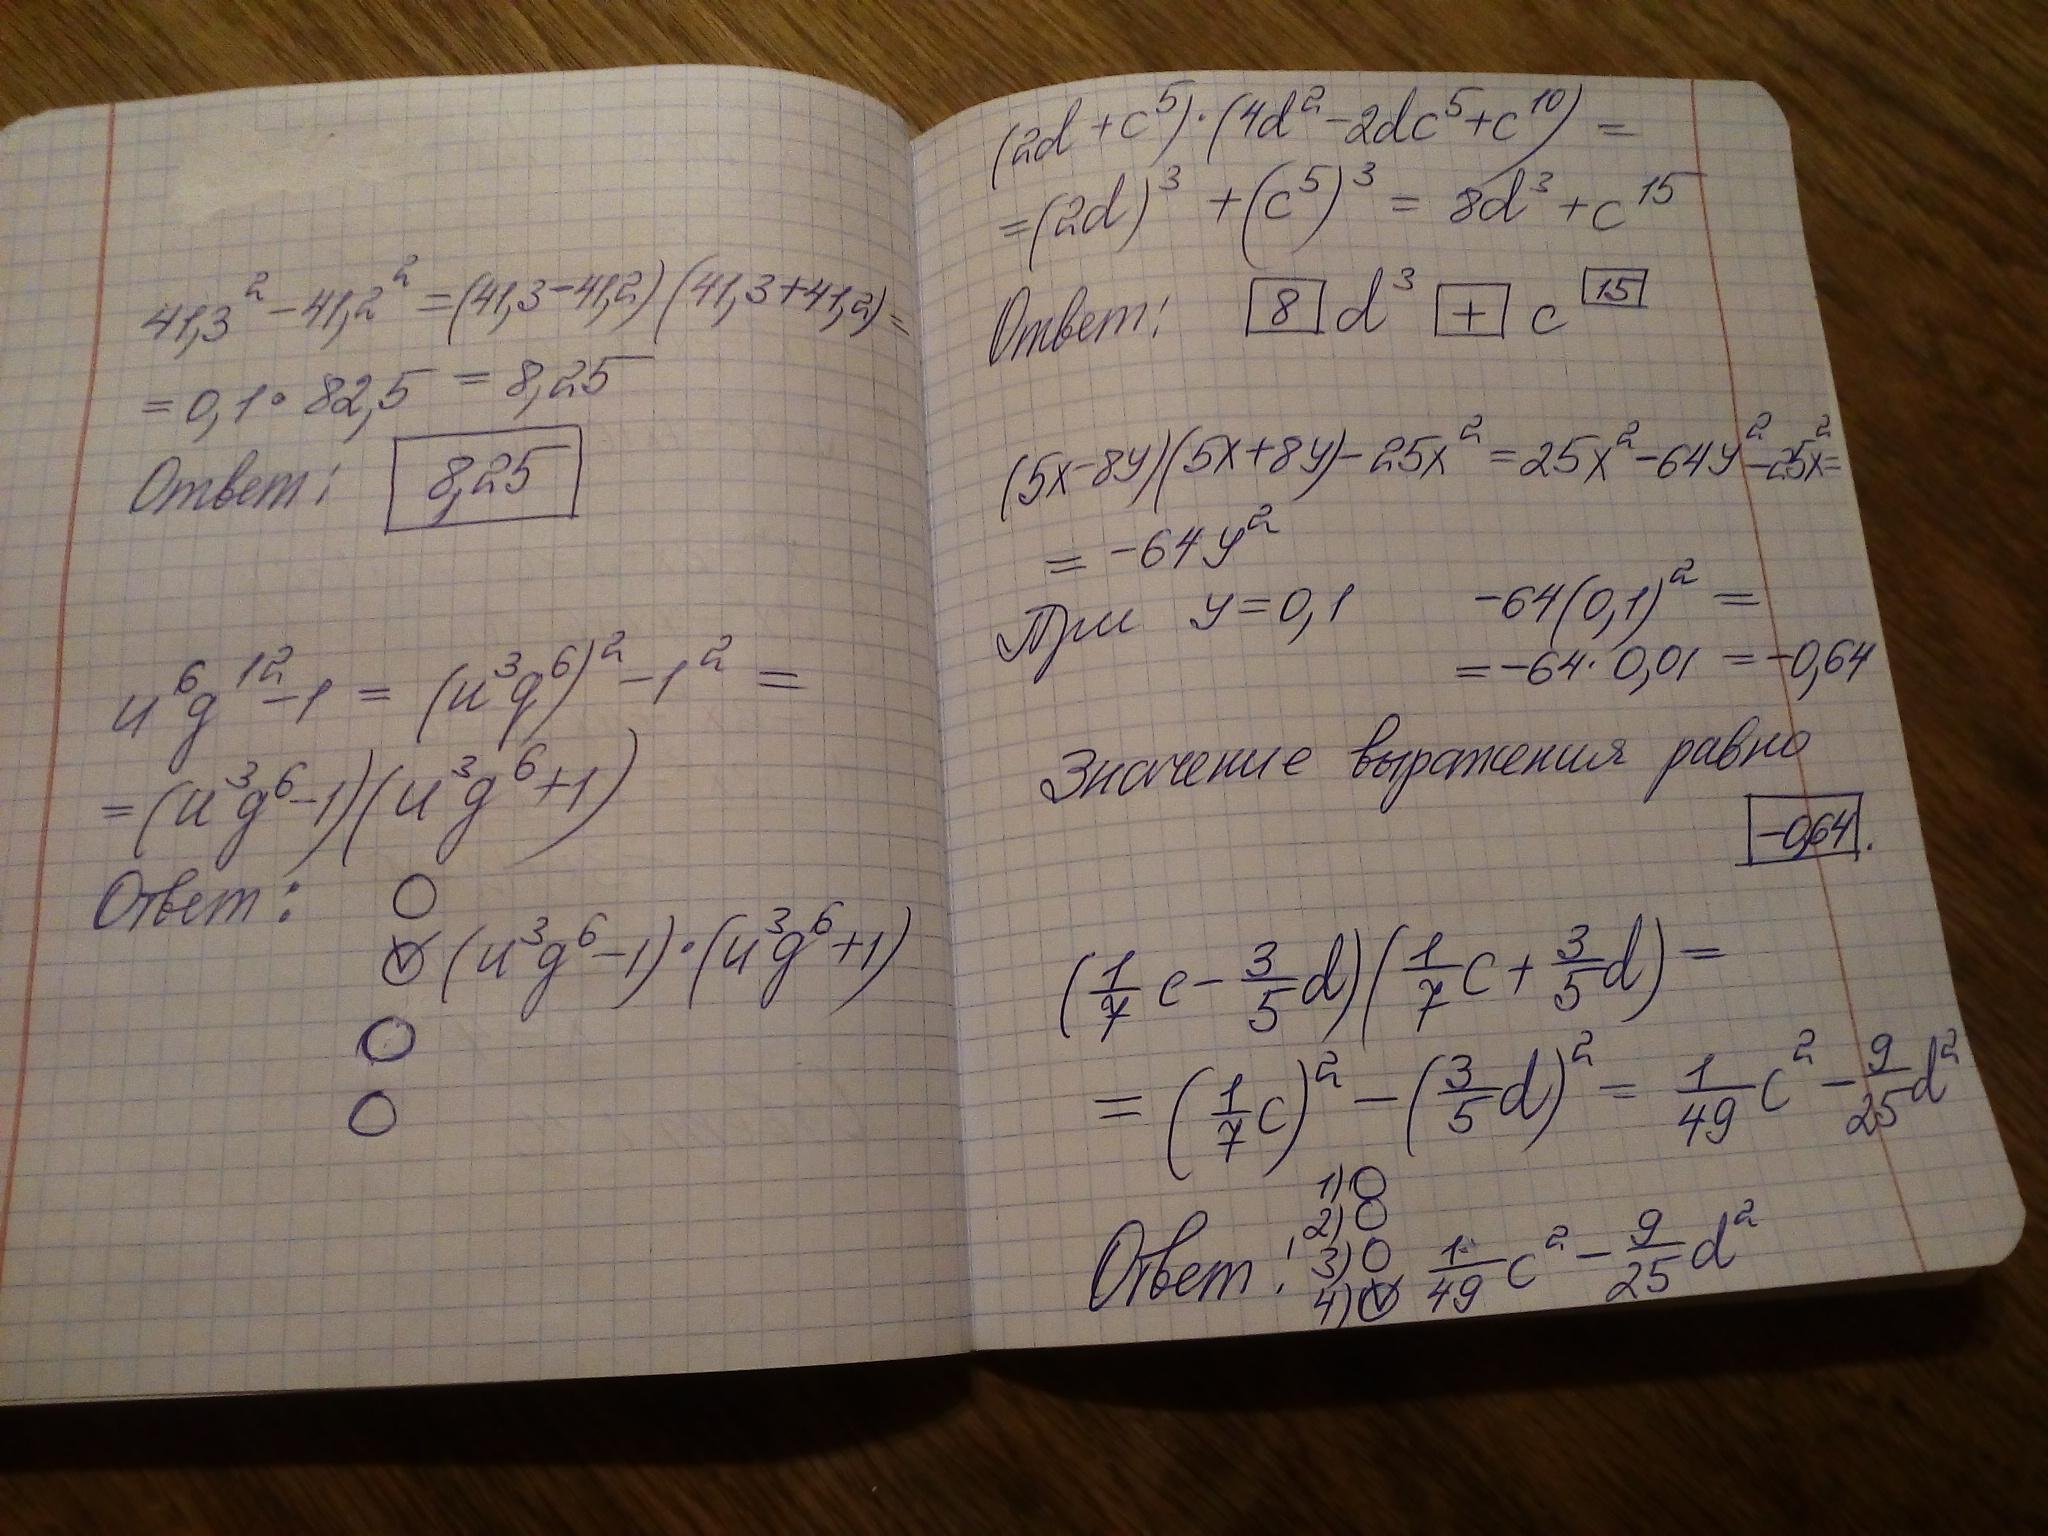 41,3² - 41,2² = (41,3 - 41,2)(41,3 + 41,2) =
= 0,1 · 82,5 = 8,25
Ответ: 8,25
u⁶g¹² - 1 = (u³g⁶)² - 1² =
= (u³g⁶ - 1)(u³g⁶ + 1)
Ответ:
(u³g⁶ - 1) · (u³g⁶ + 1)
(2d + c⁵) · (4d² - 2dc⁵ + c¹⁰) =
= (2d)³ + (c⁵)³ = 8d³ + c¹⁵
Ответ: 8 d³ + c¹⁵
(5x - 8y)(5x + 8y) - 25x² = 25x² - 64y² - 25x² =
= -64y²
При y = 0,1 -64(0,1)² =
= -64 · 0,01 = -0,64
Значение выражения равно
-0,64.
(1/7 c - 3/5 d)(1/7 c + 3/5 d) =
= (1/7 c)² - (3/5 d)² = 1/49 c² - 9/25 d²
Ответ: 1)
2)
3)
4) 1/49 c² - 9/25 d²